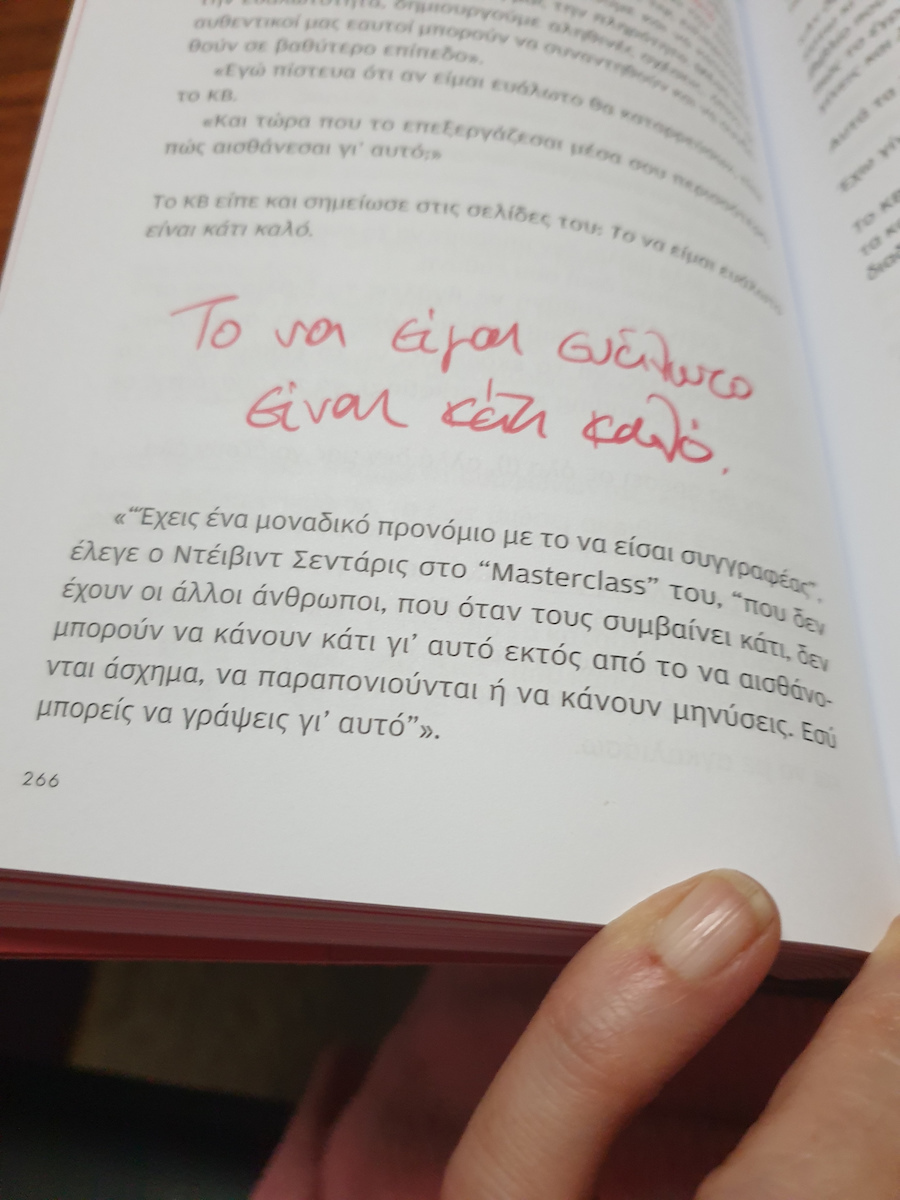 την ευαλωτότητα, δημιουργούμε αληθινές σχέσεις,
αυθεντικοί μας εαυτοί μπορούν να συναντηθούν και να
θούν σε βαθύτερο επίπεδο».
«Εγώ πίστευα ότι αν είμαι ευάλωτο θα καταρρεύσω»,
το ΚΒ.
«Και τώρα που το επεξεργάζεσαι μέσα σου περισσότερο,
πώς αισθάνεσαι γι’ αυτό;»
Το ΚΒ είπε και σημείωσε στις σελίδες του: Το να είμαι ευάλωτο
είναι κάτι καλό.
Το να είμαι ευάλωτο
είναι κάτι καλό.
«“Έχεις ένα μοναδικό προνόμιο με το να είσαι συγγραφέας”,
έλεγε ο Ντέιβιντ Σεντάρις στο “Masterclass” του, “που δεν
έχουν οι άλλοι άνθρωποι, που όταν τους συμβαίνει κάτι, δεν
μπορούν να κάνουν κάτι γι’ αυτό εκτός από το να αισθάνο-
νται άσχημα, να παραπονιούνται ή να κάνουν μηνύσεις. Εσύ
μπορείς να γράψεις γι’ αυτό”».
266
αυτά τα
έχω
το ΚΒ
τα